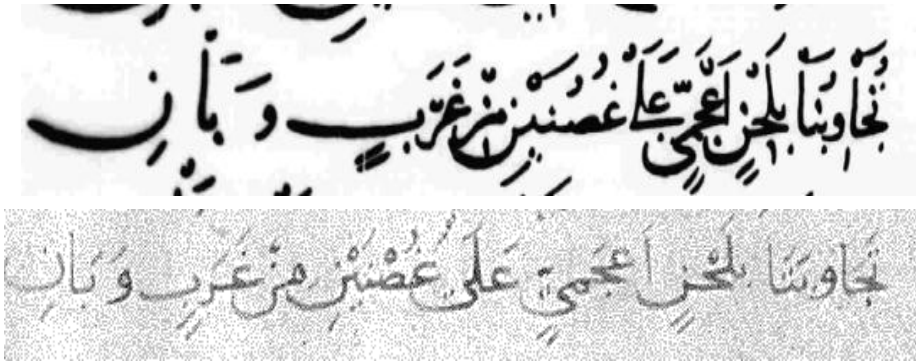 تُجَاوِبُنَا بِلَحْنٍ اَعْجَمِيٍّ عَلَى غُصُنَيْنِ مِنْ غَرَبٍ وَبَانِ
تَجَاوبَنَا بِلَحْنٍ اَعجَمِيٍّ عَلَى غُصْنَيْنِ مِنْ غَرَبٍ وَبَانِ